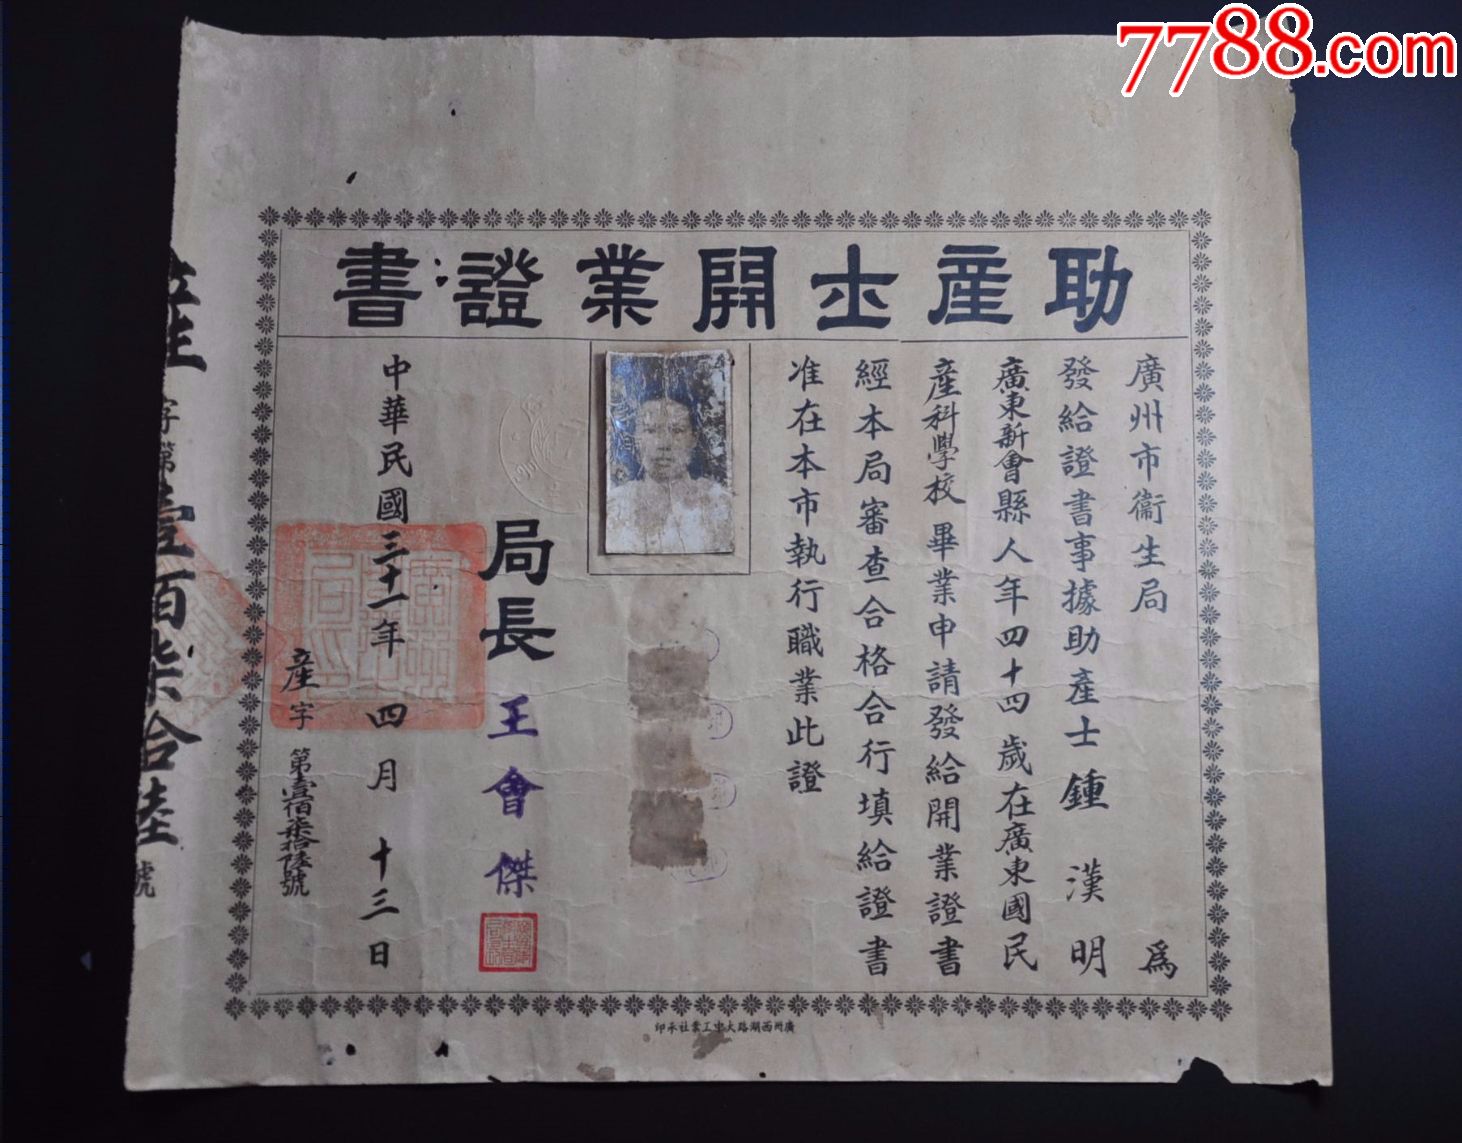 7788.com
助產士開業證書
廣州市衞生局 為
發給證書事據助產士鍾漢明
廣東新會縣人年四十四歲在廣東國民
產科學校畢業申請發給開業證書
經本局審查合格合行填給證書
准在本市執行職業此證
局長王會傑
中華民國三十一年四月十三日
產字第壹佰柒拾陸號
產字第壹百柒拾陸號
廣州西湖路大中工業社承印